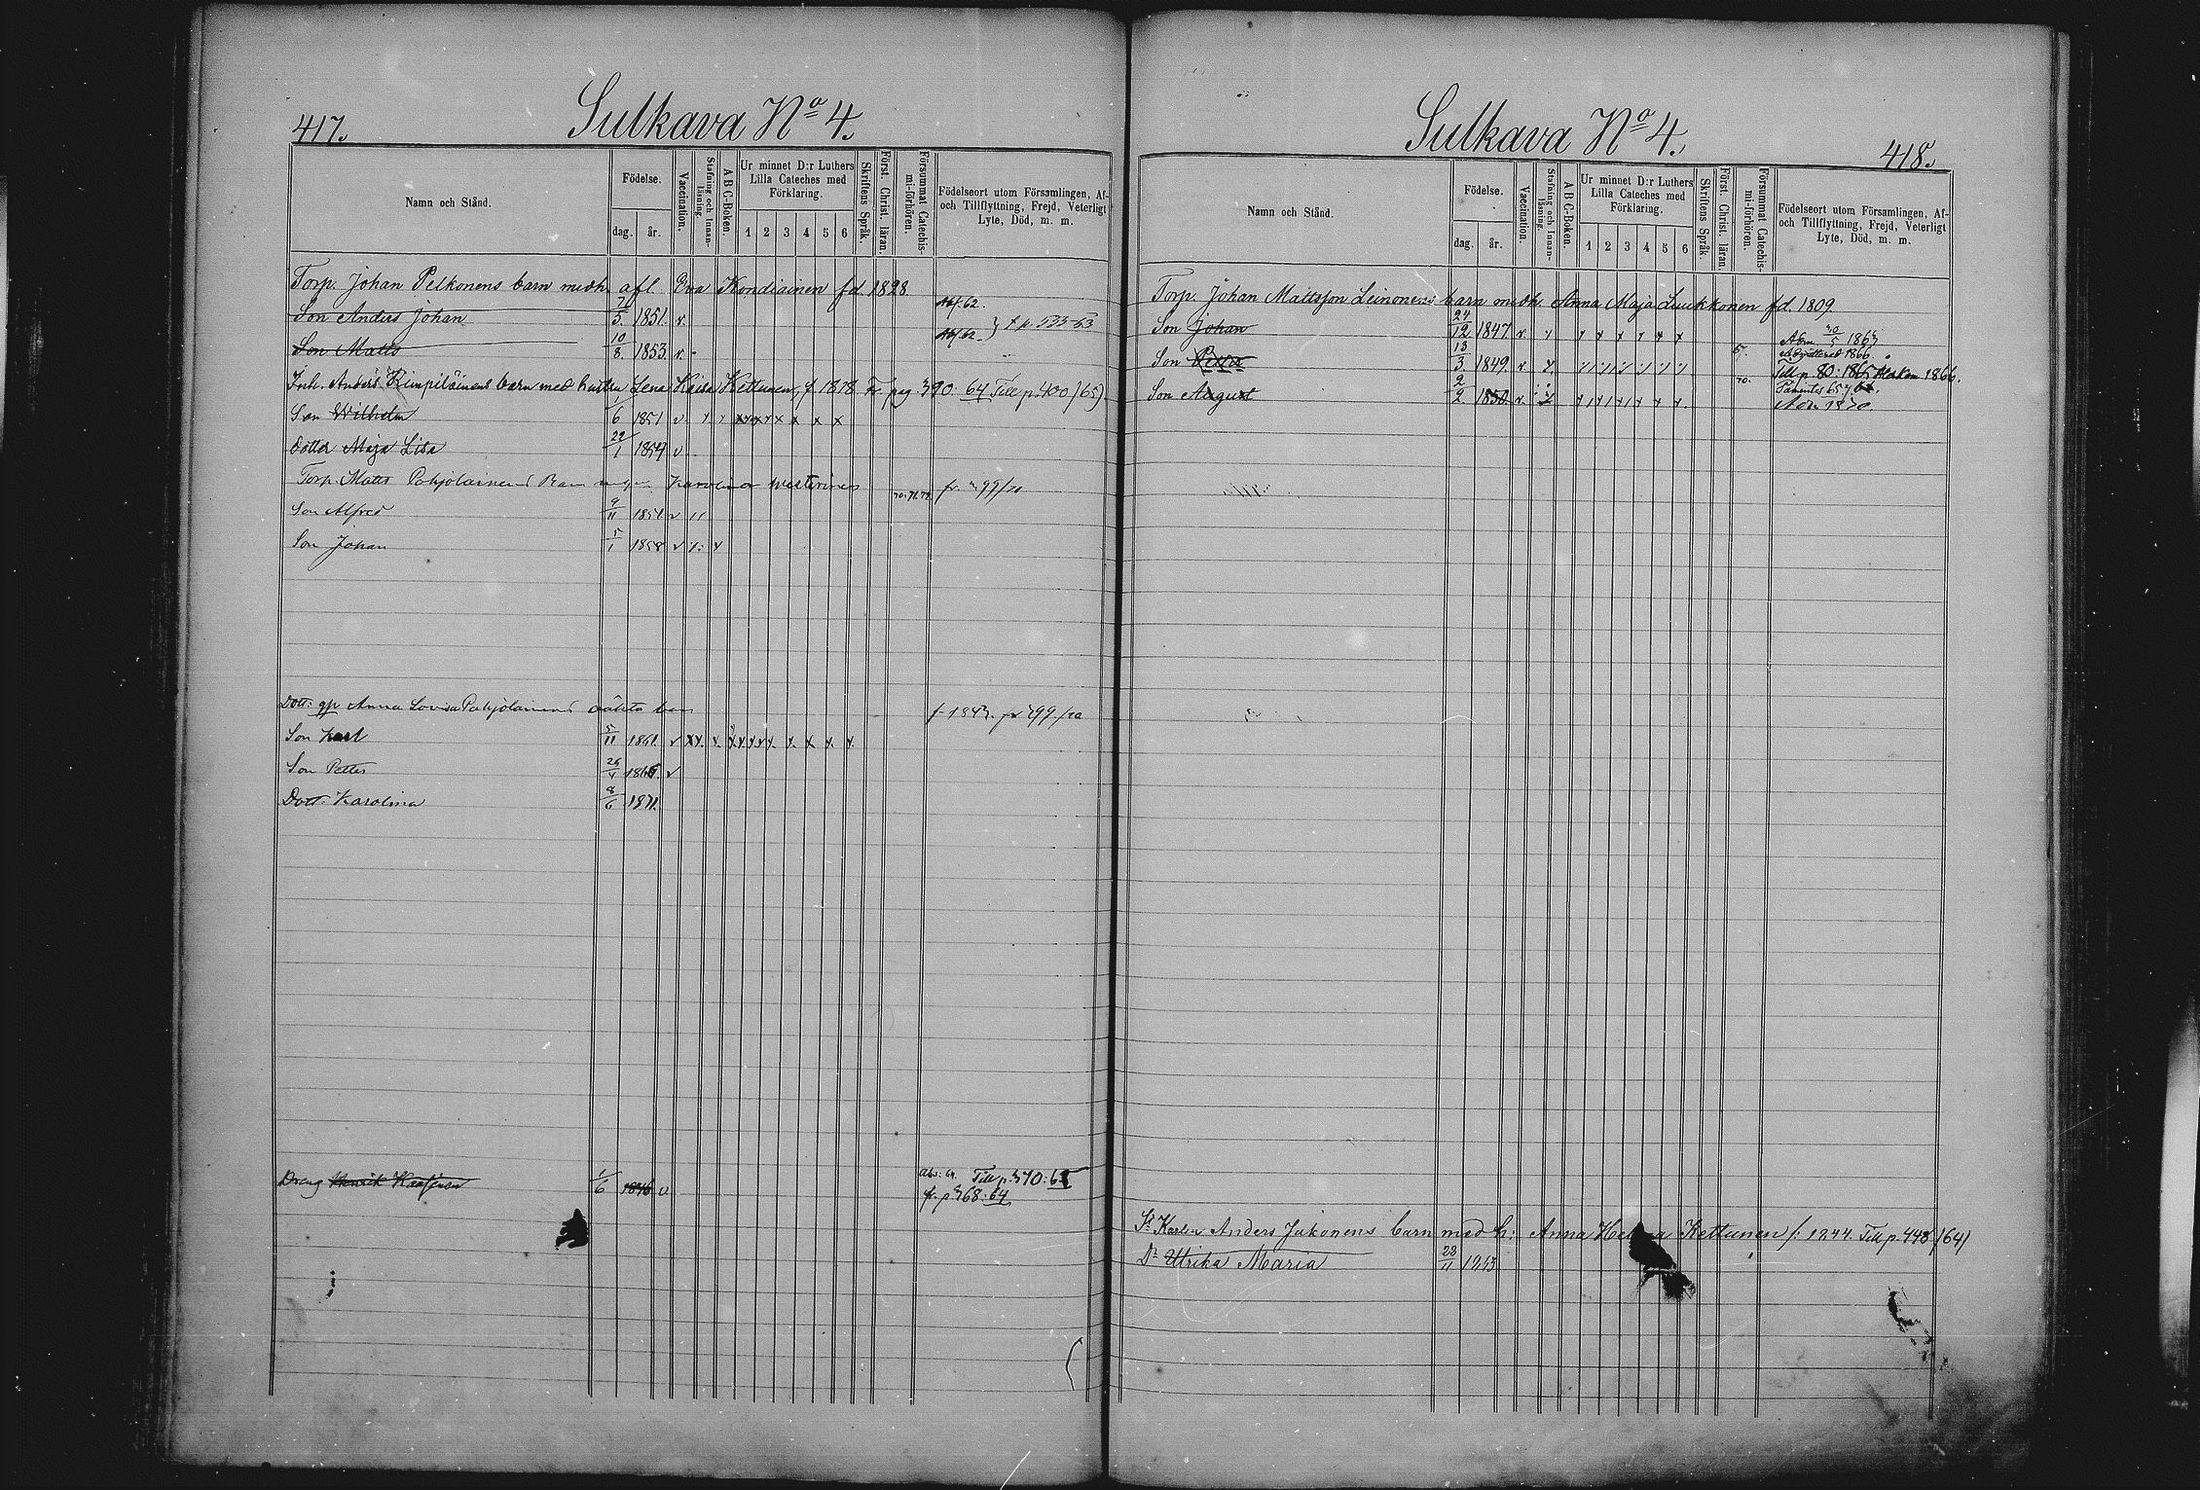 417.
Sulkava No 4.
Namn och Stånd.
Födelse.
dag.
år.
Vaccination.
Stafning och Innan-
läsning.
A B C-Boken.
Ur minnet D:r Luthers
Lilla Cateches med
Förklaring.
1 2 3 4 5 6
Skriftens Språk.
Först. Christ. läran.
Försummat Catechis-
mi-förhören.
Födelseort utom Församlingen, Af-
och Tillflyttning, Frejd, Veterligt
Lyte, Död, m. m.
Torp. Johan Pelkonens barn medh. afl. Eva Kondiainen fd. 1828.
Son Anders Johan 5. 1851. v.
Son Matts 10/8. 1853. v. p. 533-63
Inh. Anders Rimpiläinens barn med hustru Lena Kaisa Kettunen, f 1818. Fr. pag 390: 64 Till p. 400 (65)
Son Wilhelm 6 1851 v x x x x x x
Dotter Maja Lisa 22/1 1854 v
Torp. Matts Pohjolainens Barn Karolina Westerinen 70. 71. 72. fr. 399/70
Son Alfred 9/11 1851 v
Son Johan 5/1 1858 v
Dott: Anna Lovisa Pohjolainens oäkta barn f. 1843. fr 399/70
Son Karl 5/11 1861. v
Son Petter 26/4 v
Dott: Karolina 8/6 1871.
Dreng Henrik 1/6 1846 v Abs: 64. Till p. 370:65
fr. p. 368:64
Sulkava No 4.
418.
Namn och Stånd.
Födelse.
dag.
år.
Vaccination.
Stafning och Innan-
läsning.
A B C-Boken.
Ur minnet D:r Luthers
Lilla Cateches med
Förklaring.
1 2 3 4 5 6
Skriftens Språk.
Först. Christ. läran.
Försummat Catechis-
mi-förhören.
Födelseort utom Församlingen, Af-
och Tillflyttning, Frejd, Veterligt
Lyte, Död, m. m.
Torp. Johan Mattsson Leinonens barn medh. Anna Maja Luukkonen fd. 1809.
Son Johan 24/12 1847. v.
Son Petter 13/3 1849. v. Till p. 80: 1865 1866.
Son August 2/2. 1850 v. Adm 1870.
Anders Jukonens barn med h: Anna Helena Kettunen f. 1844. Till p. 448 (64)
Dr Ulrika Maria 28/11 1863